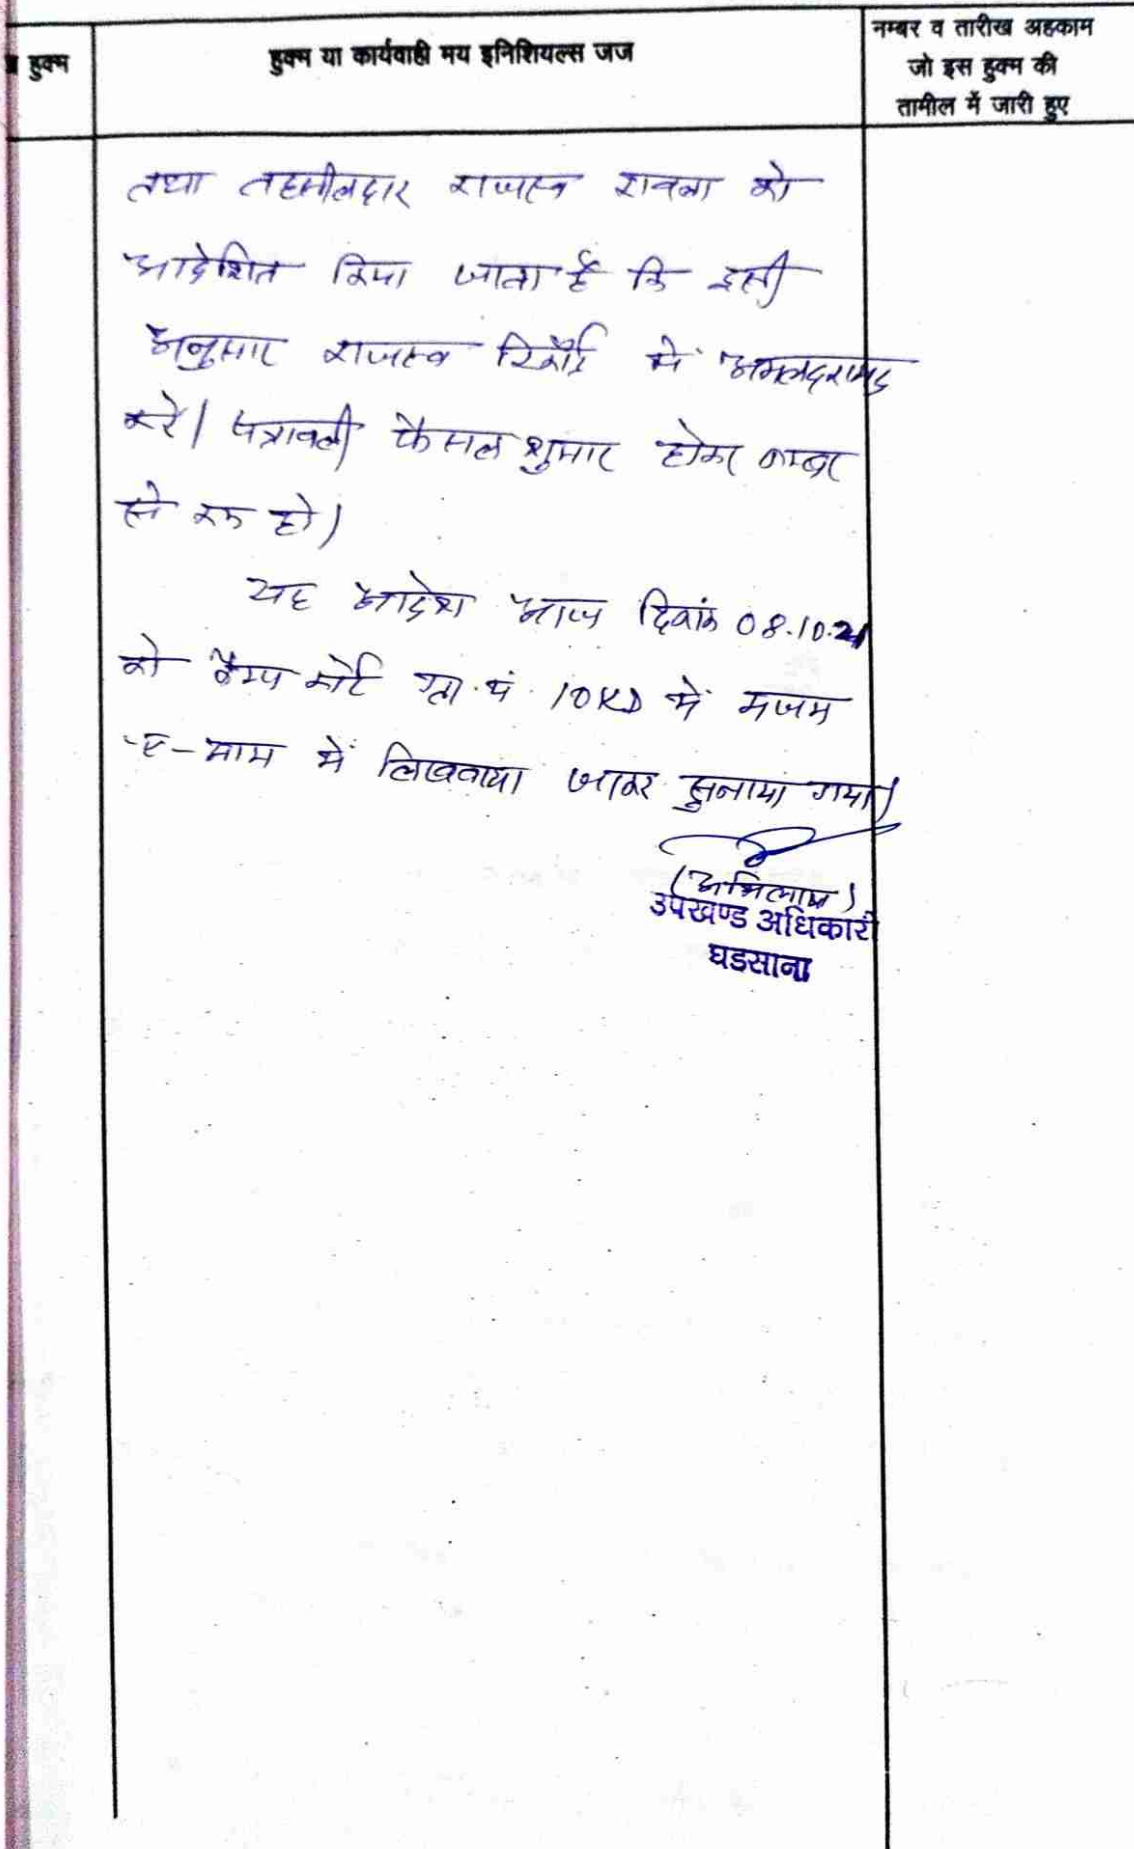 हुक्म
हुक्म या कार्यवाही मय इनिशियल्स जज
नम्बर व तारीख अहकाम
जो इस हुक्म की
तामील में जारी हुए
तथा तहसीलदार राजस्व रावला को
आदेशित किया जाता है कि इसी
अनुसार राजस्व रिकॉर्ड में अमलदरामद
करे। पत्रावली फैसल शुमार होकर नम्बर
से कम हो।
यह आदेश आज दिनांक 08.10.21
को कैम्प कोर्ट ग्रा.पं. 10KD में मजम
-ए-आम में लिखवाया जाकर सुनाया गया।
(अभिलाषा)
उपखण्ड अधिकारी
घडसाना